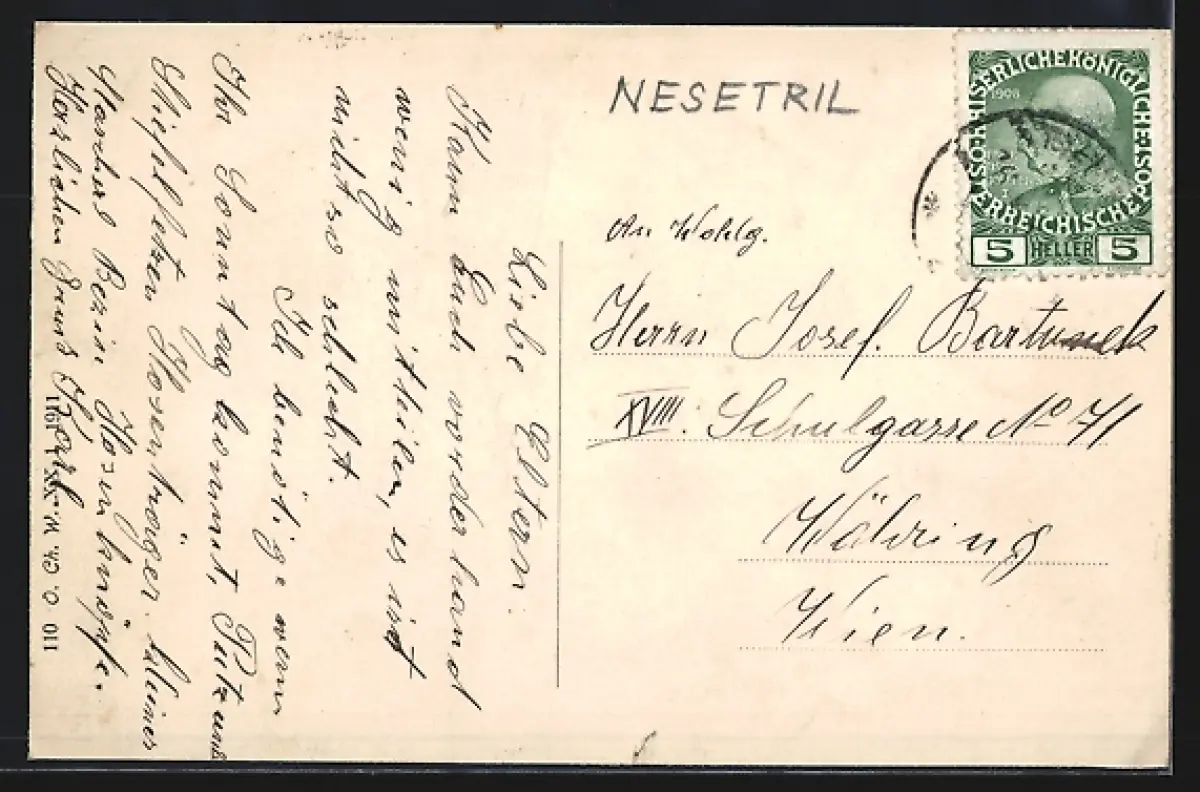 NESETRIL
KAISERLICHE KÖNIGLICHE ÖSTERREICHISCHE POST
1908
5 HELLER 5
An Wohlg.
Herrn Josef. Bartunek
XVIII. Schulgasse No 71
Währing
Wien.
Liebe Eltern:
Kann Euch vorderhand
wenig mittheilen, es ist
nicht so schlecht.
Ich benötige wenn
Ihr Sonntag kommt, Putz und
Stiefelfetzen Hosenträger. kleines
Benzin Hosenknöpfe.
Herzlichen Gruss Karl
110
1911